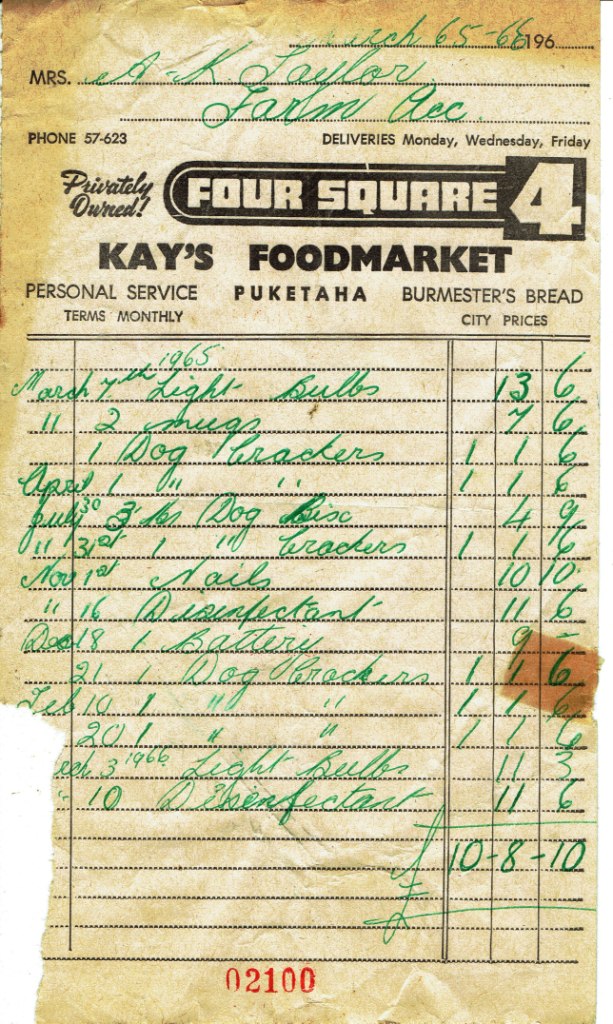 March 65-66 196
MRS. A-K Taylor
Farm Acc.
PHONE 57-623 DELIVERIES Monday, Wednesday, Friday
Privately Owned! FOUR SQUARE 4
KAY'S FOODMARKET
PERSONAL SERVICE PUKETAHA BURMESTER'S BREAD
TERMS MONTHLY CITY PRICES
1965
March 7th Light Bulbs 13 6
" 2 mugs 7 6
1 Dog Crackers 1 1 6
April 1 " " 1 1 6
July 30 3 Dog Bisc 4 9
" 31st 1 " Crackers 1 1 6
Nov 1st Nails 10 10
" 16 Disinfectant 11 6
Dec 18 1 Battery 9 -
21 1 Dog Crackers 1 1 6
Feb 10 1 " " 1 1 6
20 1 " " 1 1 6
ch 3 1966 Light Bulbs 11 3
" 10 Disenfectant 11 6
£ 10-8-10
02100